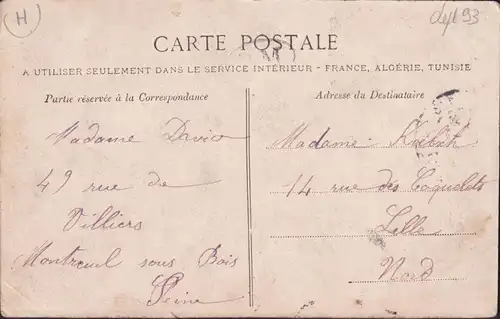 H
Dépt 93
CARTE POSTALE
A UTILISER SEULEMENT DANS LE SERVICE INTÉRIEUR - FRANCE, ALGÉRIE, TUNISIE
Partie réservée à la Correspondance
Madame
49 rue de
Villiers
Montreuil sous Bois
Seine
Adresse du Destinataire
Madame
14 rue des Coquelets
Lille
Nord